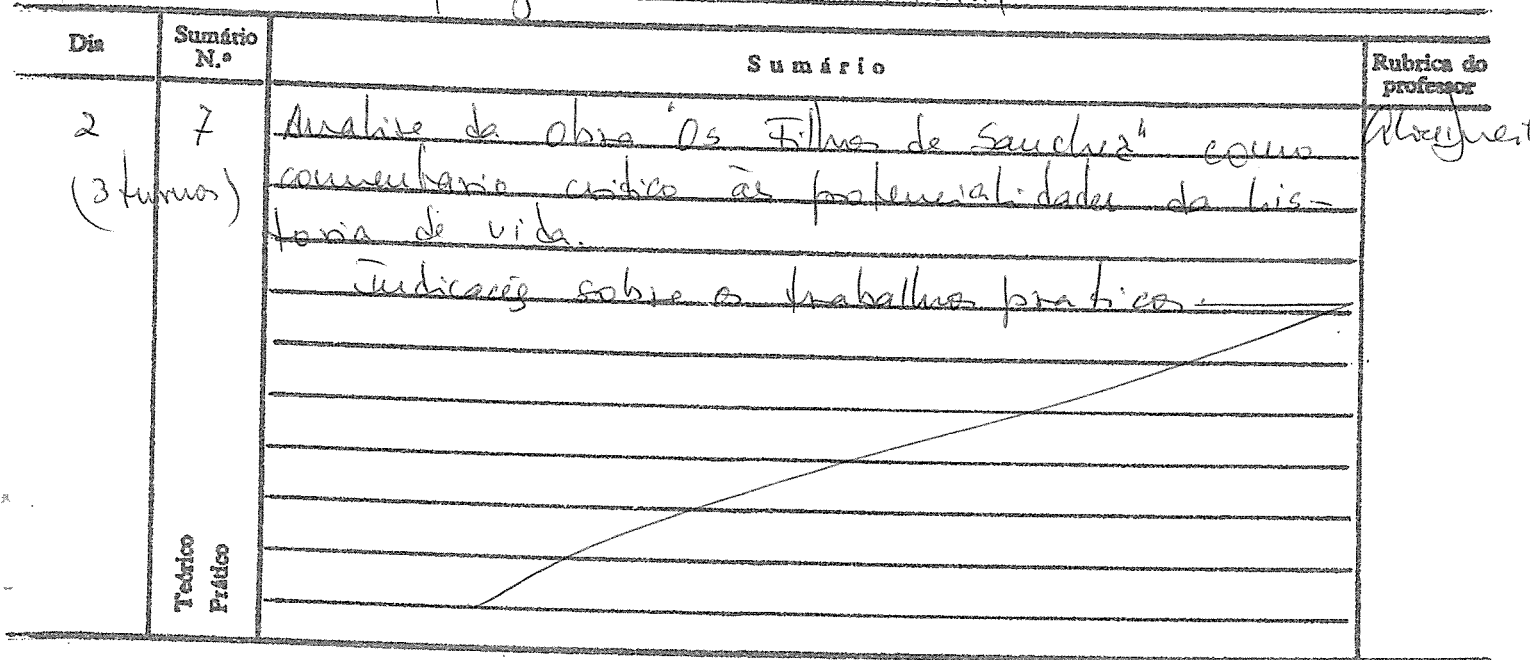 Dia
Sumário N.º
Sumário
Rubrica do professor
2
7
Analise da obra "Os Filhos de Sanchez" como
(3 turnos)
comentario critico às potencialidades da his-
toria de vida.
Indicações sobre os trabalhos praticos.
Teórico
Prático